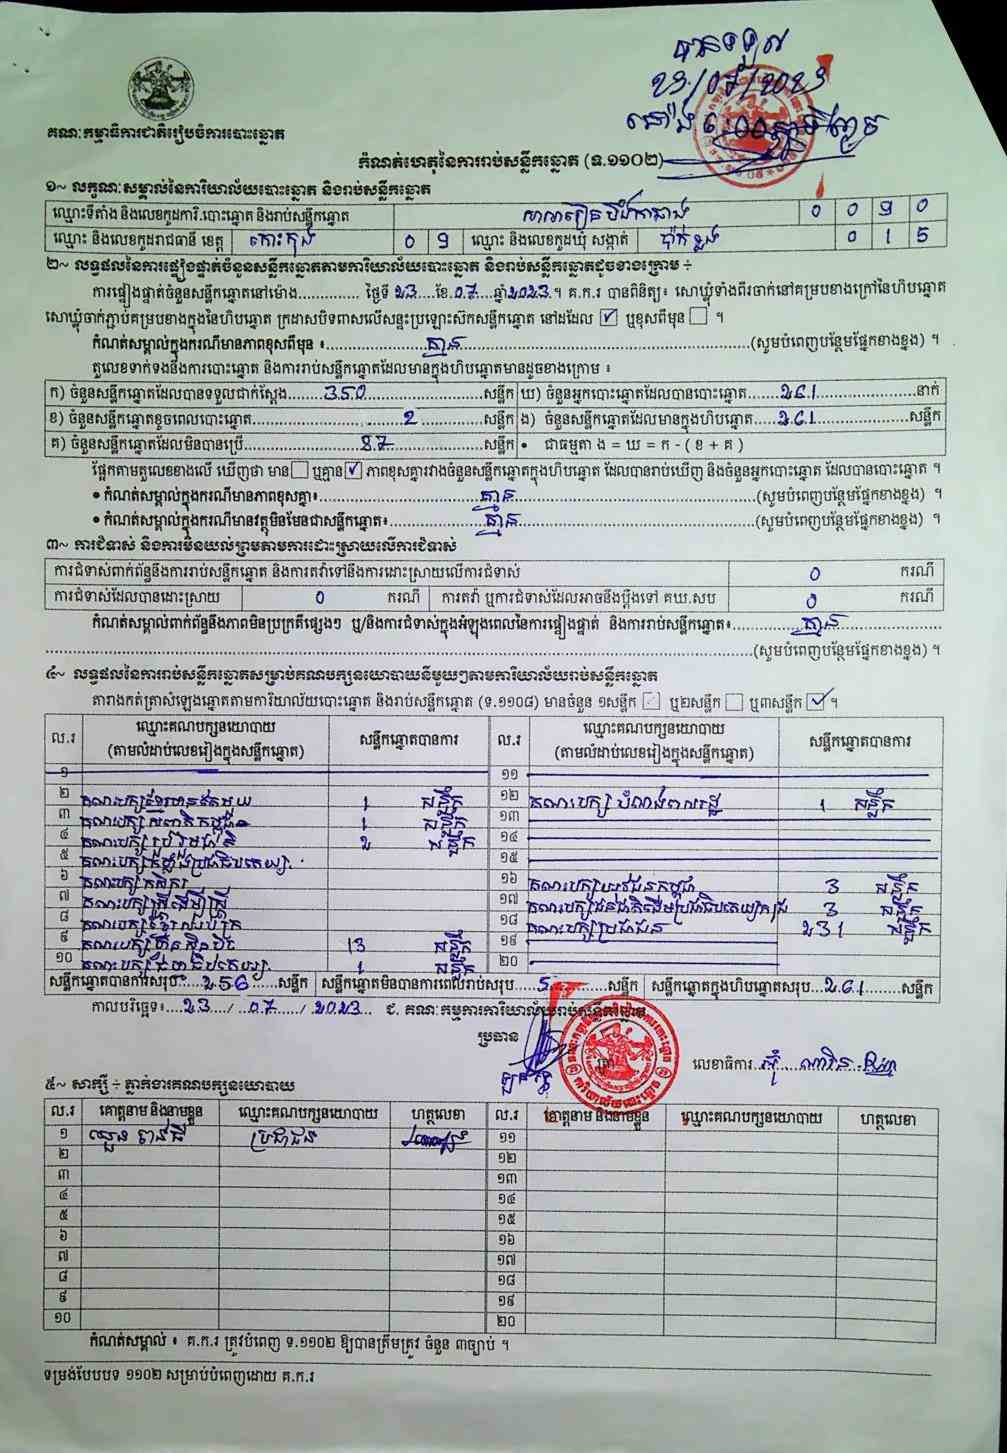 បានទទួល
23/07/2023
ម៉ោង 6:00
គណៈកម្មាធិការជាតិរៀបចំការបោះឆ្នោត
កំណត់ហេតុនៃការរាប់សន្លឹកឆ្នោត (ទ.១១០២)
១~ លក្ខណៈសម្គាល់នៃការិយាល័យបោះឆ្នោត និងរាប់សន្លឹកឆ្នោត
ឈ្មោះទីតាំង និងលេខកូដការិ.បោះឆ្នោត និងរាប់សន្លឹកឆ្នោត 0 0 9 0
ឈ្មោះ និងលេខកូដរាជធានី ខេត្ត កោះកុង 0 9 ឈ្មោះ និងលេខកូដឃុំ សង្កាត់ ប៉ាក់ខ្លង 0 1 5
២~ លទ្ធផលនៃការផ្ទៀងផ្ទាត់ចំនួនសន្លឹកឆ្នោតតាមការិយាល័យបោះឆ្នោត និងរាប់សន្លឹកឆ្នោតដូចខាងក្រោម ÷
ការផ្ទៀងផ្ទាត់ចំនួនសន្លឹកឆ្នោតនៅម៉ោង.............. ថ្ងៃទី 23 ...ខែ.07....ឆ្នាំ 2023.។ គ.ក.រ បានពិនិត្យ៖ សោឃ្លុំទាំងពីរចាក់នៅគម្របខាងក្រៅនៃហិបឆ្នោត
សោឃ្លុំចាក់ភ្ជាប់គម្របខាងក្នុងនៃហិបឆ្នោត ក្រដាសបិទពាសលើសន្ទះប្រឡោះស៊កសន្លឹកឆ្នោត នៅដដែល ☑ ឬខុសពីមុន ☐ ។
កំណត់សម្គាល់ក្នុងករណីមានភាពខុសពីមុន ៖ គ្មាន (សូមបំពេញបន្ថែមផ្នែកខាងខ្នង) ។
តួលេខទាក់ទងនឹងការបោះឆ្នោត និងការរាប់សន្លឹកឆ្នោតដែលមានក្នុងហិបឆ្នោតមានដូចខាងក្រោម ៖
ក) ចំនួនសន្លឹកឆ្នោតដែលបានទទួលជាក់ស្ដែង 350 សន្លឹក ឃ) ចំនួនអ្នកបោះឆ្នោតដែលបានបោះឆ្នោត 261 នាក់
ខ) ចំនួនសន្លឹកឆ្នោតខូចពេលបោះឆ្នោត 2 សន្លឹក ង) ចំនួនសន្លឹកឆ្នោតដែលមានក្នុងហិបឆ្នោត 261 សន្លឹក
គ) ចំនួនសន្លឹកឆ្នោតដែលមិនបានប្រើ 87 សន្លឹក • ជាធម្មតា ង = ឃ = ក - ( ខ + គ )
ផ្អែកតាមតួលេខខាងលើ ឃើញថា មាន ☐ ឬគ្មាន ☑ ភាពខុសគ្នារវាងចំនួនសន្លឹកឆ្នោតក្នុងហិបឆ្នោត ដែលបានរាប់ឃើញ និងចំនួនអ្នកបោះឆ្នោត ដែលបានបោះឆ្នោត ។
• កំណត់សម្គាល់ក្នុងករណីមានភាពខុសគ្នា៖ គ្មាន (សូមបំពេញបន្ថែមផ្នែកខាងខ្នង) ។
• កំណត់សម្គាល់ក្នុងករណីមានវត្ថុមិនមែនជាសន្លឹកឆ្នោត៖ គ្មាន (សូមបំពេញបន្ថែមផ្នែកខាងខ្នង) ។
៣~ ការជំទាស់ និងការមិនយល់ព្រមតាមការដោះស្រាយលើការជំទាស់
ការជំទាស់ពាក់ព័ន្ធនឹងការរាប់សន្លឹកឆ្នោត និងការតវ៉ាទៅនឹងការដោះស្រាយលើការជំទាស់ 0 ករណី
ការជំទាស់ដែលបានដោះស្រាយ 0 ករណី ការតវ៉ា ឬការជំទាស់ដែលអាចនឹងប្ដឹងទៅ គឃ.សប 0 ករណី
កំណត់សម្គាល់ពាក់ព័ន្ធនឹងភាពមិនប្រក្រតីផ្សេងៗ ឬ/និងការជំទាស់ក្នុងអំឡុងពេលនៃការផ្ទៀងផ្ទាត់ និងការរាប់សន្លឹកឆ្នោត៖ គ្មាន
(សូមបំពេញបន្ថែមផ្នែកខាងខ្នង) ។
៤~ លទ្ធផលនៃការរាប់សន្លឹកឆ្នោតសម្រាប់គណបក្សនយោបាយនីមួយៗតាមការិយាល័យរាប់សន្លឹកឆ្នោត
តារាងកត់ត្រាសំឡេងឆ្នោតតាមការិយាល័យបោះឆ្នោត និងរាប់សន្លឹកឆ្នោត (ទ.១១០៨) មានចំនួន ១សន្លឹក ☐ ឬ២សន្លឹក ☐ ឬ៣សន្លឹក ☑ ។
ល.រ ឈ្មោះគណបក្សនយោបាយ (តាមលំដាប់លេខរៀងក្នុងសន្លឹកឆ្នោត) សន្លឹកឆ្នោតបានការ ល.រ ឈ្មោះគណបក្សនយោបាយ (តាមលំដាប់លេខរៀងក្នុងសន្លឹកឆ្នោត) សន្លឹកឆ្នោតបានការ
១ ១១
២ គណបក្សខ្មែរឯកភាព 1 សន្លឹក ១២ គណបក្ស 1 សន្លឹក
៣ គណបក្ស 1 សន្លឹក ១៣
៤ គណបក្ស 2 សន្លឹក ១៤
៥ គណបក្ស ១៥
៦ គណបក្សកសិករ ១៦ គណបក្សយុវជនកម្ពុជា 3 សន្លឹក
៧ គណបក្សស្ត្រីដើម្បីស្ត្រី ១៧ គណបក្ស 3 សន្លឹក
៨ គណបក្ស ១៨ គណបក្សប្រជាជន 231 សន្លឹក
៩ គណបក្សហ្វ៊ុនស៊ិនប៉ិច 13 សន្លឹក ១៩
១០ គណបក្ស 1 សន្លឹក ២០
សន្លឹកឆ្នោតបានការសរុប 256 សន្លឹក សន្លឹកឆ្នោតមិនបានការពេលរាប់សរុប 5 សន្លឹក សន្លឹកឆ្នោតក្នុងហិបឆ្នោតសរុប 261 សន្លឹក
កាលបរិច្ឆេទ៖ 23 / 07 / 2023 ជ. គណៈកម្មការការិយាល័យរាប់សន្លឹកឆ្នោត
ប្រធាន
លេខាធិការ
៥~ សាក្សី ÷ ភ្នាក់ងារគណបក្សនយោបាយ
ល.រ គោត្តនាម និងនាមខ្លួន ឈ្មោះគណបក្សនយោបាយ ហត្ថលេខា ល.រ គោត្តនាម និងនាមខ្លួន ឈ្មោះគណបក្សនយោបាយ ហត្ថលេខា
១ ប្រជាជន ១១
២ ១២
៣ ១៣
៤ ១៤
៥ ១៥
៦ ១៦
៧ ១៧
៨ ១៨
៩ ១៩
១០ ២០
កំណត់សម្គាល់ ៖ គ.ក.រ ត្រូវបំពេញ ទ.១១០២ ឱ្យបានត្រឹមត្រូវ ចំនួន ៣ច្បាប់ ។
ទម្រង់បែបបទ ១១០២ សម្រាប់បំពេញដោយ គ.ក.រ